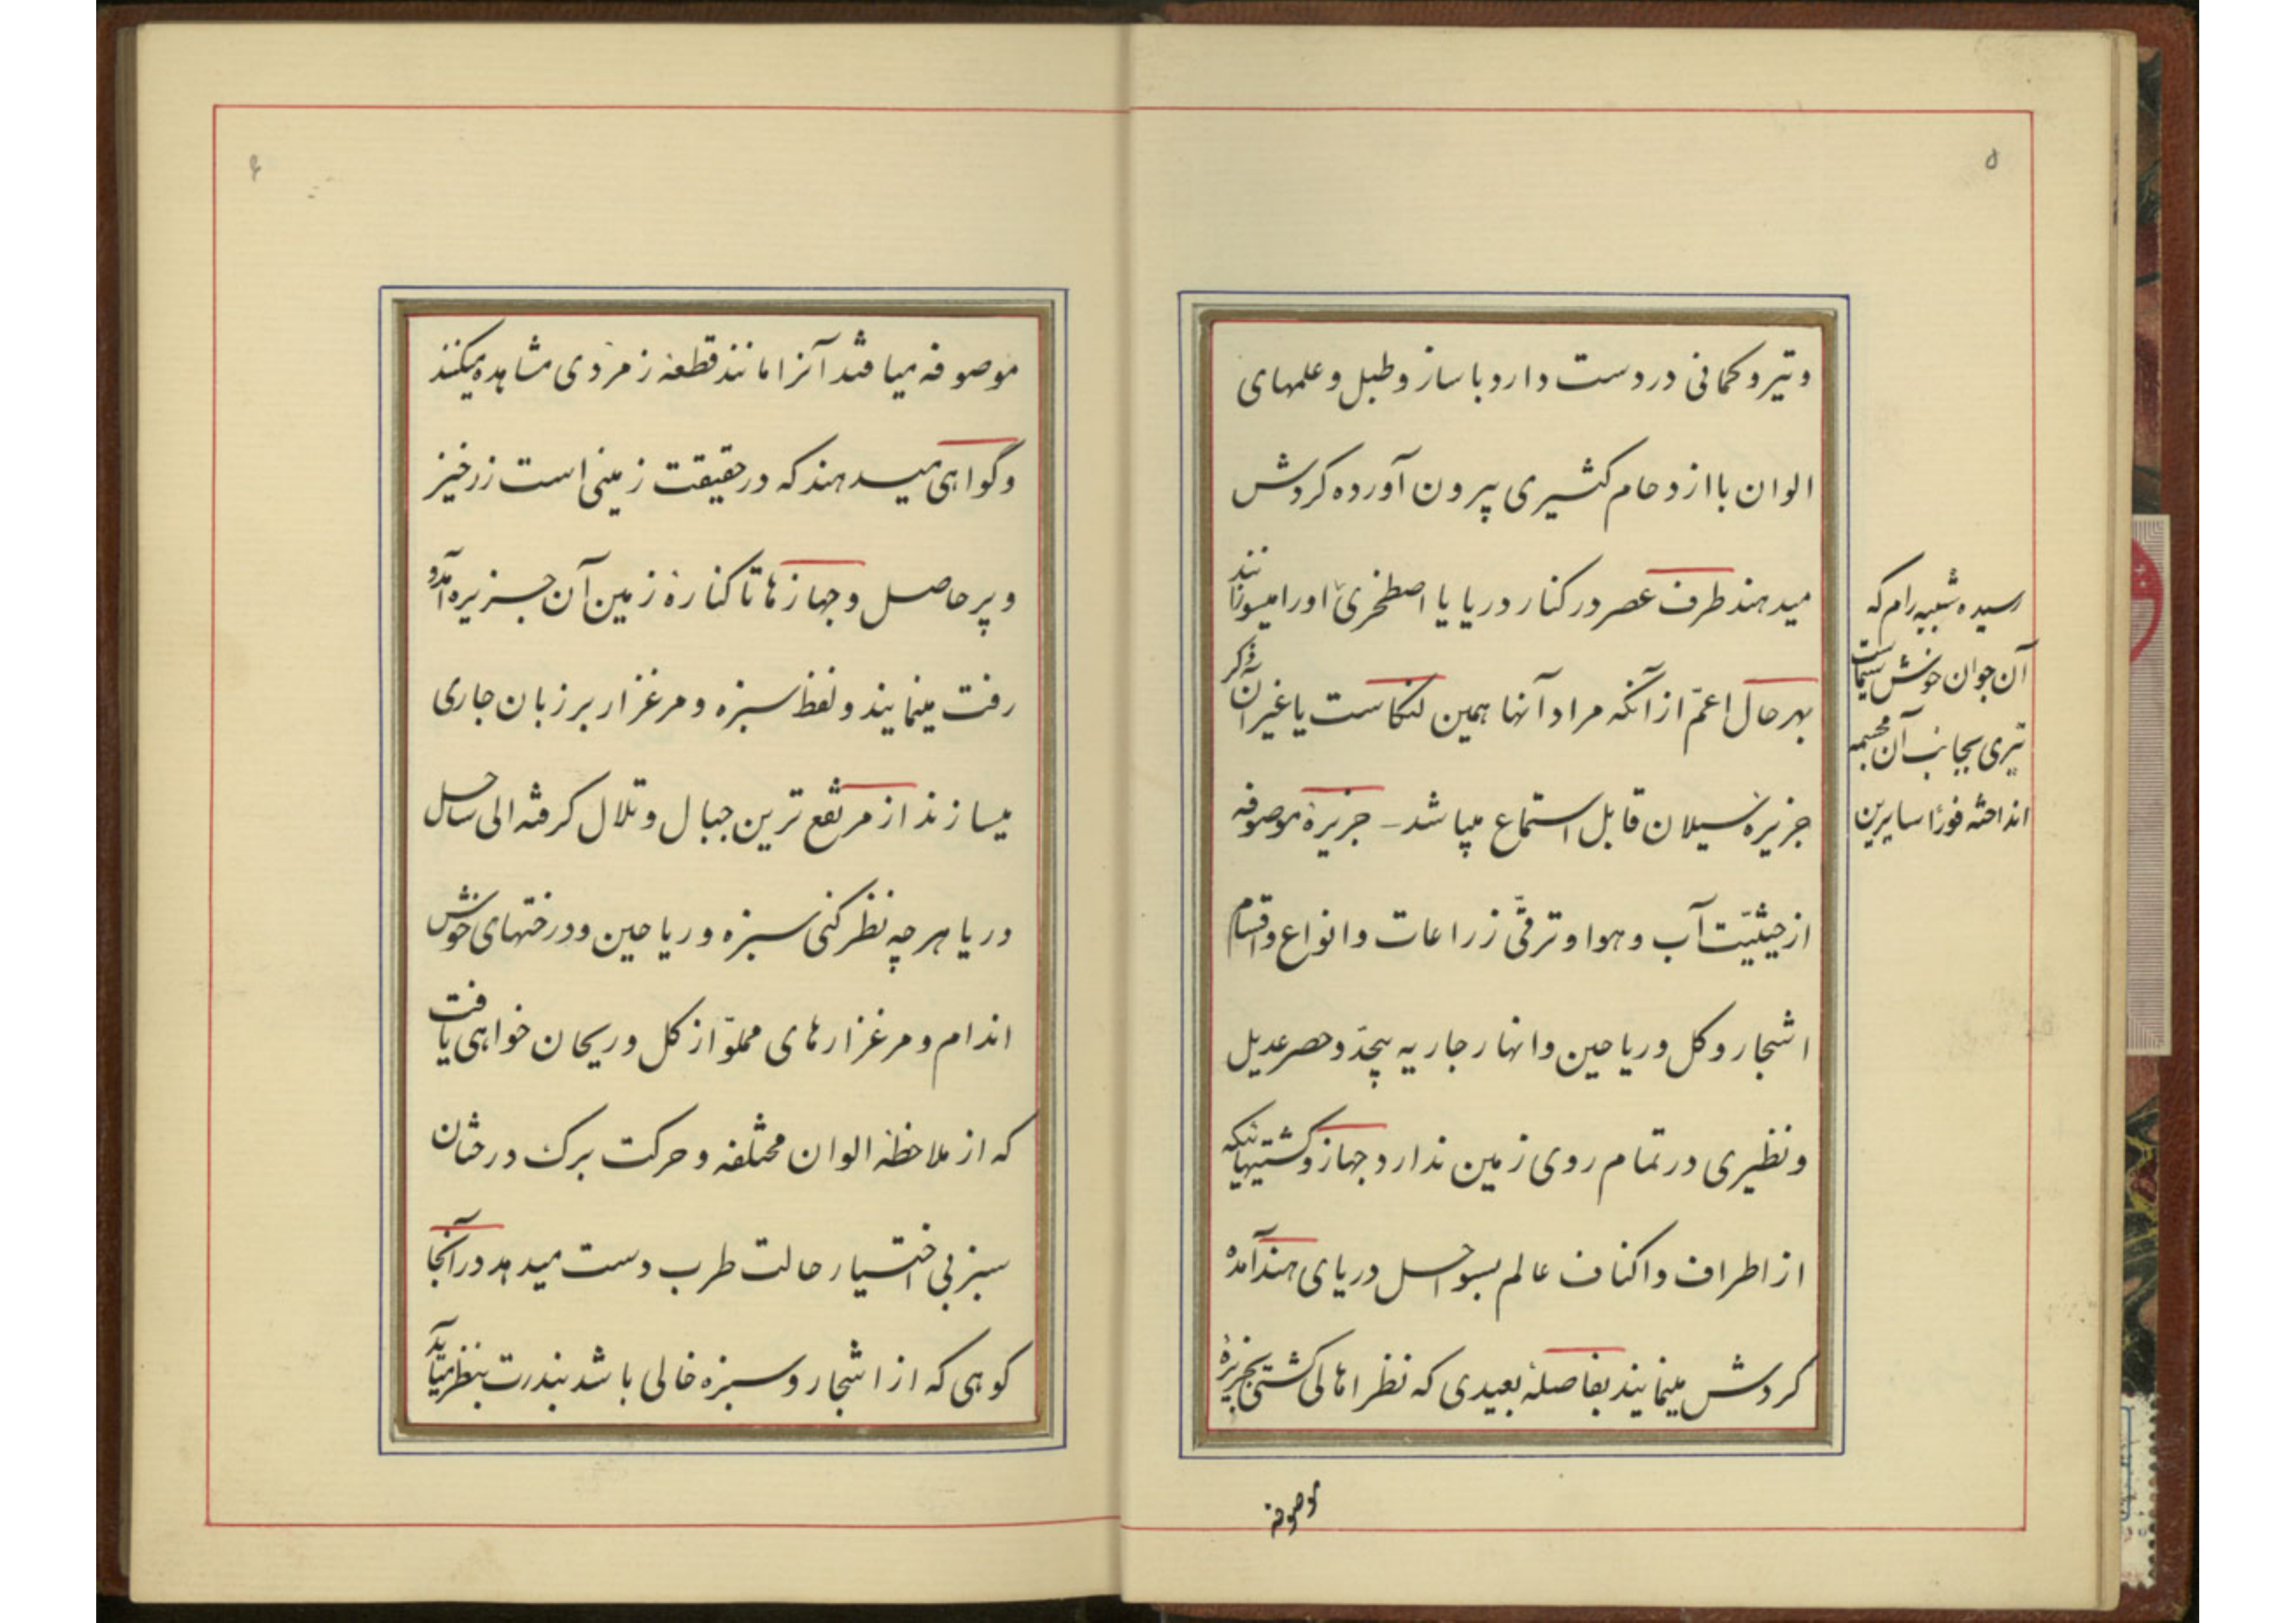 ۵
و تیر و کمانی در دست دارد با ساز و طبل و علمهای
الوان با ازدحام کثیری بیرون آورده کردش
میدهند طرف عصر در کنار دریا یا اصطخری اورا میسوزانند
بهر حال اعمّ از آنکه مراد آنها همین لنکاست یا غیر آن ذکر
جزیرهٔ سیلان قابل استماع میباشد – جزیرهٔ موصوفه
از حیثیّت آب و هوا و ترقّی زراعات و انواع و اقسام
اشجار و کل و ریاحین و انهار جاریه بیحدّ و حصر عدیل
و نظیری در تمام روی زمین ندارد جهاز و کشتیهائیکه
از اطراف و اکناف عالم بسواحل دریای هند آمده
کردش مینمایند بفاصلهٔ بعیدی که نظر اهالی کشتی بجزیرهٔ
موصوفه
رسیده شبیه رام که
آن جوان خوش سیماست
تیری بجانب آن مجسمه
انداخته فوراً سایرین
۶
موصوفه میافتد آنرا مانند قطعهٔ زمردی مشاهده میکنند
و گواهی میدهند که در حقیقت زمینی است زرخیز
و پر حاصل و جهازها تا کنارهٔ زمین آن جزیره آمد و
رفت مینمایند و لفظ سبزه و مرغزار بر زبان جاری
میسازند از مرتفع ترین جبال و تلال کرفته الی ساحل
دریا هر چه نظر کنی سبزه و ریاحین و درختهای خوش
اندام و مرغزارهای مملوّ از کل و ریحان خواهی یافت
که از ملاحظهٔ الوان مختلفه و حرکت برک درختان
سبز بی اختیار حالت طرب دست میدهد در آنجا
کوهی که از اشجار و سبزه خالی باشد بندرت بنظر میآید